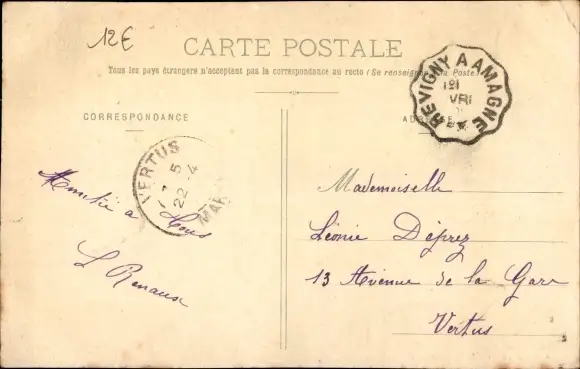 12€
CARTE POSTALE
Tous les pays étrangers n'acceptent pas la correspondance au recto (Se renseigner à la Poste)
CORRESPONDANCE
REVIGNY A AMAGNE
VERTUS
5
22-4
MAR
à Vous
L Renaux
Mademoiselle
Léonie Déprez
13 Avenue de la Gare
Vertus